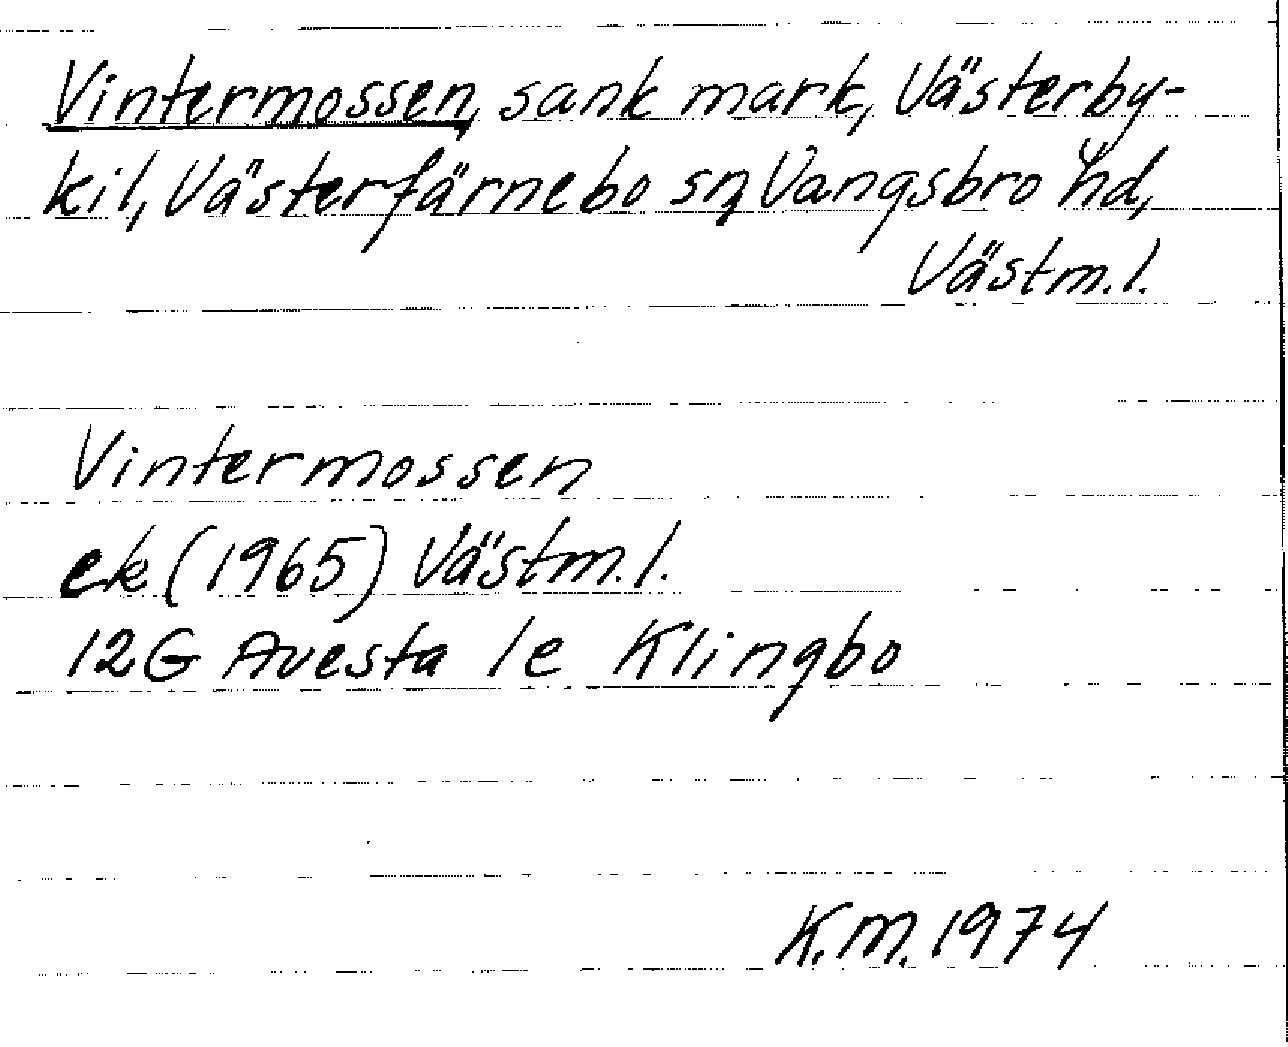 Vintermossen, sank mark, Västerby-
kil, Västerfärnebo sn, Vangsbro hd,
Västm.l.
Vintermossen
ek (1965) Västm.l.
12G Avesta 1e Klingbo
K.M. 1974